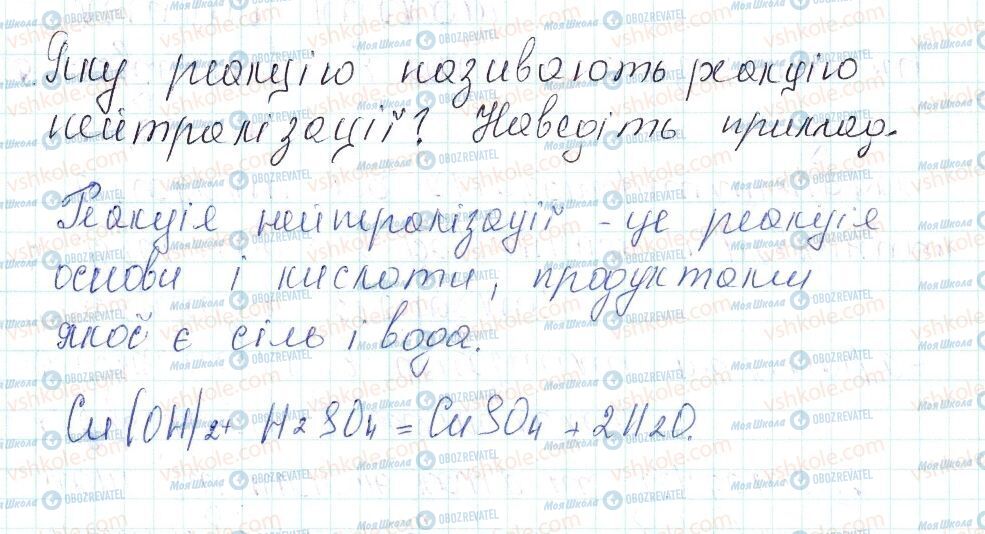 Яку реакцію називають реакцію
нейтралізації? Наведіть приклад.
Реакція нейтралізації - це реакція
основи і кислоти, продуктами
якої є сіль і вода.
Cu(OH)2 + H2SO4 = CuSO4 + 2H2O.